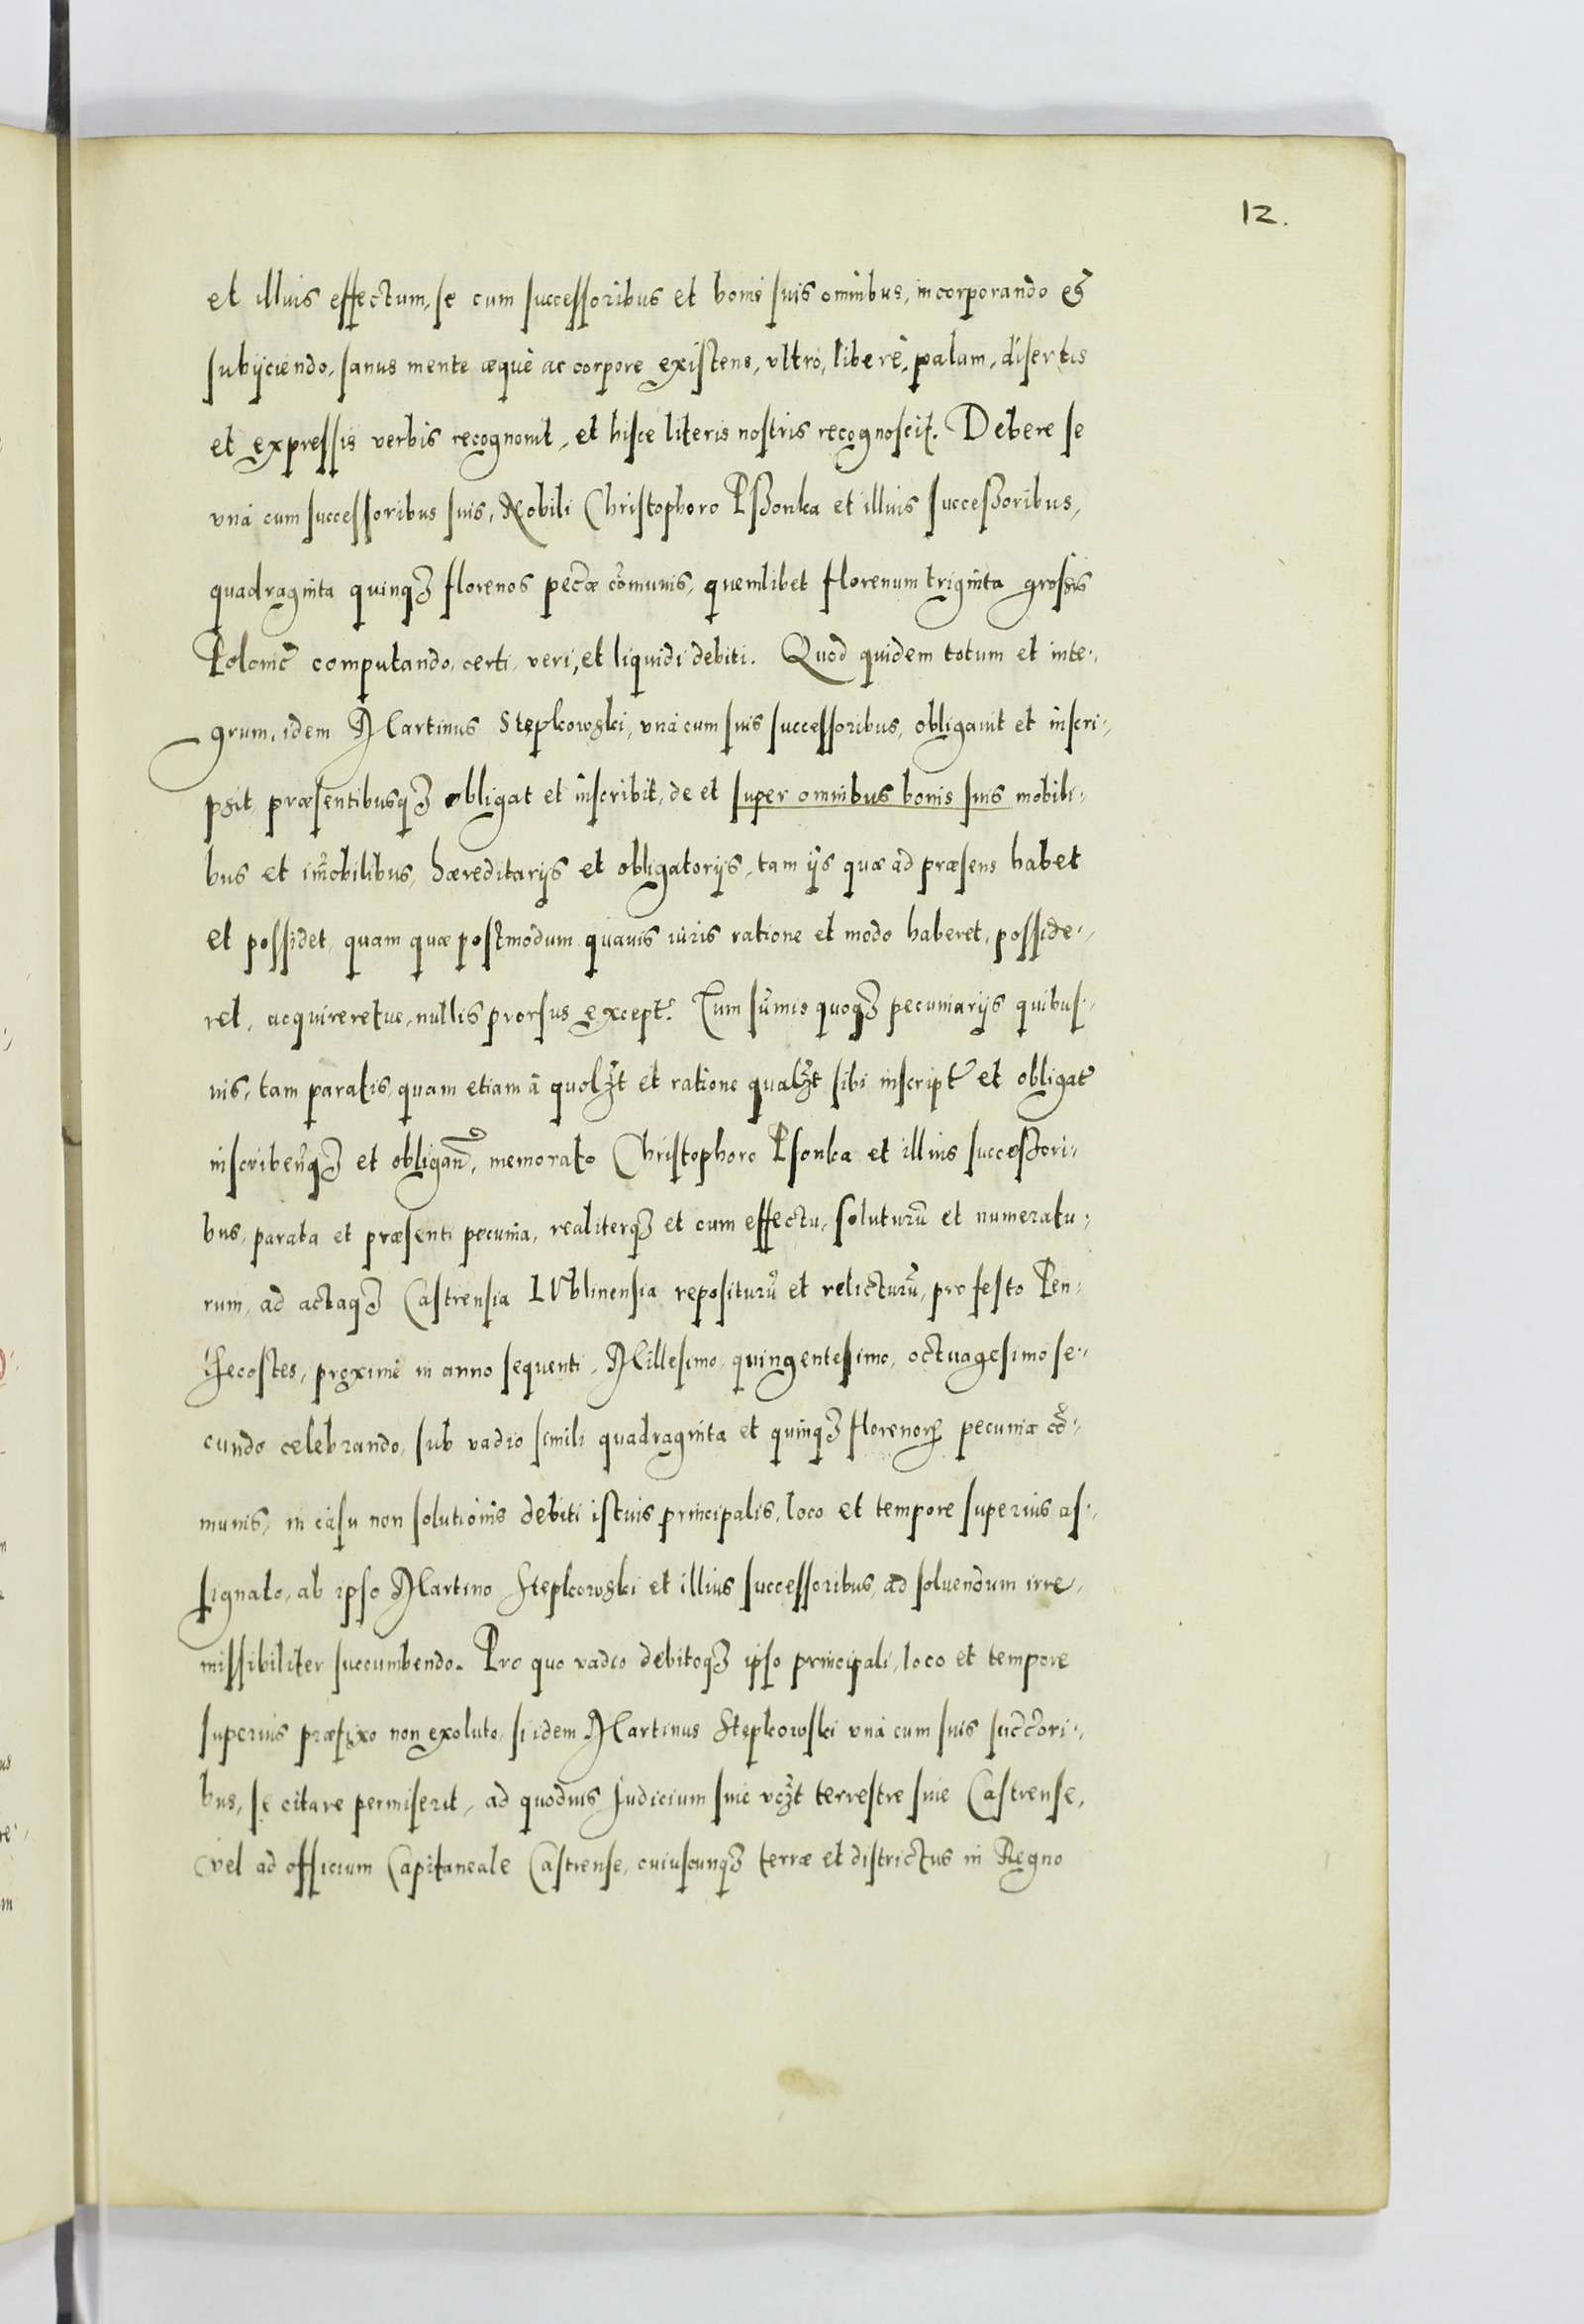 12.
et illius effectum, se cum successoribus et bonis suis omnibus, incorporando et
subijciendo, sanus mente æquè ac corpore existens, vltrò, liberè, palam, disertis
et expressis verbis recognouit, et hisce literis nostris recognoscit. Debere se
vnà cum successoribus suis, Nobili Christophoro Pßonka et illius successoribus,
quadraginta quinqꝫ florenos pec̃æ cõmunis, quemlibet florenum triginta grossis
Polonic̃ computando, certi, veri, et liquidi debiti. Quod quidem totum et inte-
grum, idem Martinus Stępkowski, vnà cum suis successoribus, obligauit et inscri-
psit, præsentibusqꝫ obligat et inscribit, de et super omnibus bonis suis mobili-
bus et im̃obilibus, hæreditarijs et obligatorijs, tam ijs quæ ad præsens habet
et possidet, quam quæ postmodum quauis iuris ratione et modo haberet, posside-
ret, acquireretue, nullis prorsus except̃. Cum sum̃is quoqꝫ pecuniarijs quibus-
uis, tam paratis, quam etiam à quolꝫt et ratione qualꝫt sibi inscript̃ et obligat̃
inscribeñqꝫ et obligañ, memorato Christophoro Psonka et illius successori-
bus, parata et præsenti pecunia, realiterqꝫ et cum effectu, soluturũ et numeratu-
rum, ad actaqꝫ Castrensia LVblinensia repositurũ et relicturũ, pro festo Pen-
thecostes, proximè in anno sequenti, Millesimo, quingentesimo, octuagesimo se-
cundo celebrando, sub vadio simili quadraginta et quinqꝫ florenorꝝ pecuniæ cõ-
munis, in casu non solutionis debiti istius principalis, loco et tempore superius as-
signato, ab ipso Martino Stępkowski et illius successoribus, ad soluendum irre-
missibiliter succumbendo. Pro quo vadio debitoqꝫ ipso principali, loco et tempore
superius præfixo non exoluto, si idem Martinus Stępkowski vnà cum suis succ̃ori-
bus, se citare permiserit, ad quoduis Judicium siue vcꝫt terrestre siue Castrense,
vel ad officium Capitaneale Castrense, cuiuscunqꝫ terræ et districtus in Regno